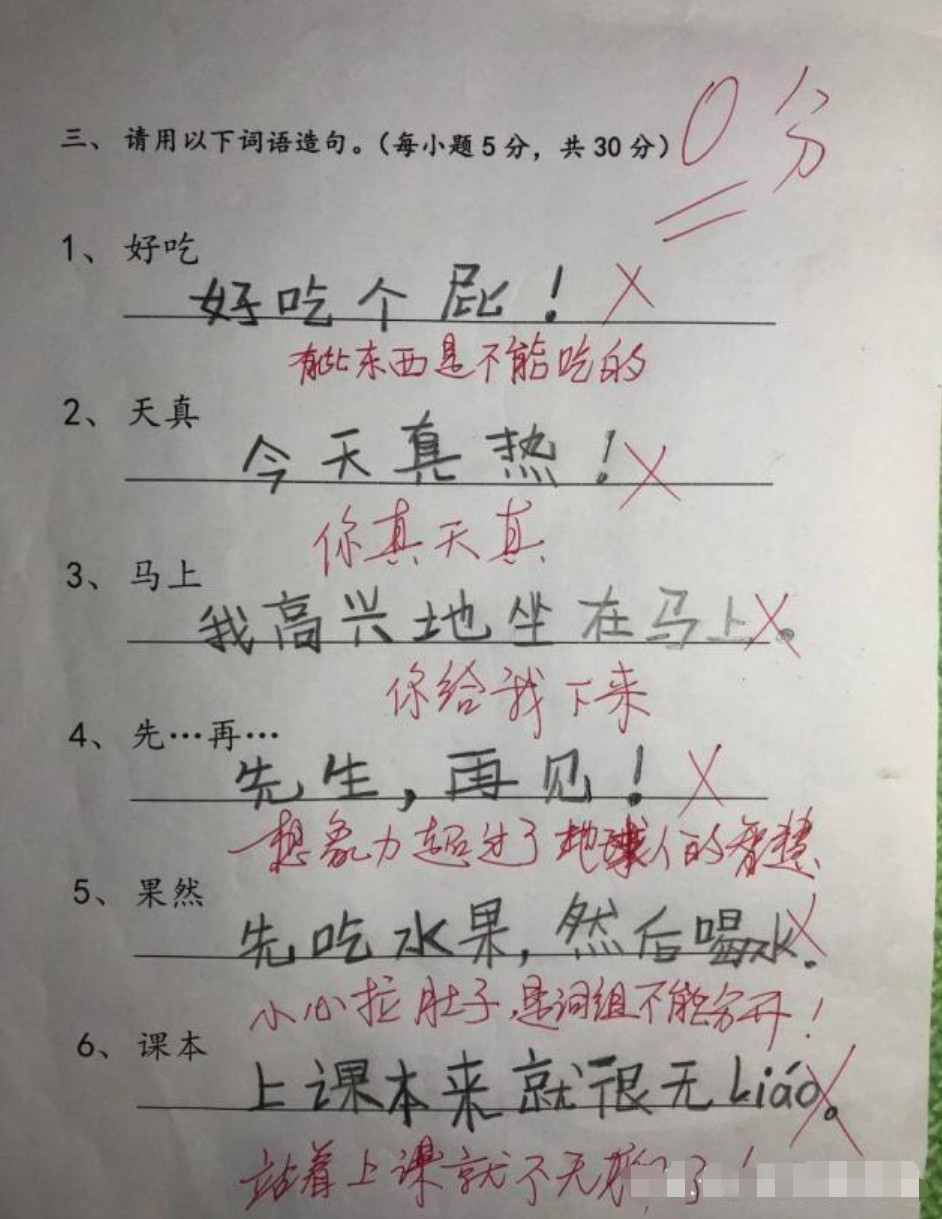 三、请用以下词语造句。（每小题5分，共30分） 0分
1、好吃
好吃个屁！
有些东西是不能吃的
2、天真
今天真热！
你真天真
3、马上
我高兴地坐在马上。
你给我下来
4、先…再…
先生，再见！
想象力超过了地球人的智慧
5、果然
先吃水果，然后喝水.
小心拉肚子，是词组不能分开！
6、课本
上课本来就很无Liáo。
站着上课就不无聊了！